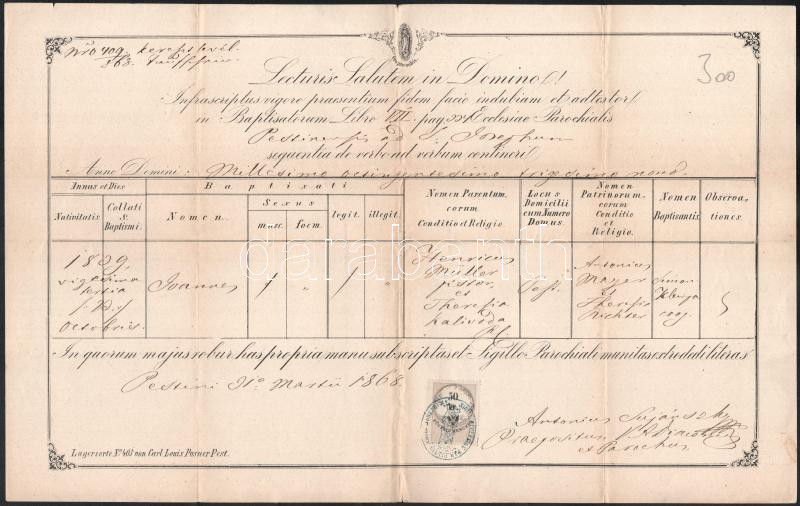 Nro 409
863.
Lecturis Salutem in Domino!
300
Infrascriptus vigore praesentium fidem facio indubiam et adtestor
in Baptisatorum Libro VII pag. Ecclesiae Parochialis
Pestinensis ad S. Josephum
sequentia de verbo ad verbum contineri
Anno Domini: Millesimo octingentesimo trigesimo nono.
Annus et Dies
Nativitatis.
Collati S. Baptismi.
Baptisati
Nomen.
Sexus
masc.
foem.
legit.
illegit.
Nomen Parentum, eorum Conditio et Religio.
Locus Domicilii cum Numero Domus.
Nomen Patrinorum, eorum Conditio et Religio.
Nomen Baptisantis.
Observationes.
1839
vigesima
tertia
Octobris.
Joannes
Henricus
Müller
pistor
et
Theresia
Antonius
Mayer
et
Theresia
Richter
Simon
coop.
In quorum majus robur has propria manu subscriptas et Sigillo Parochiali munitas extradedi literas
Pestini 31o Martii 1868.
50
Antonius
Praepositus
Parochus
Lagersorte No 403 von Carl Louis Posner Pest.
darabanth